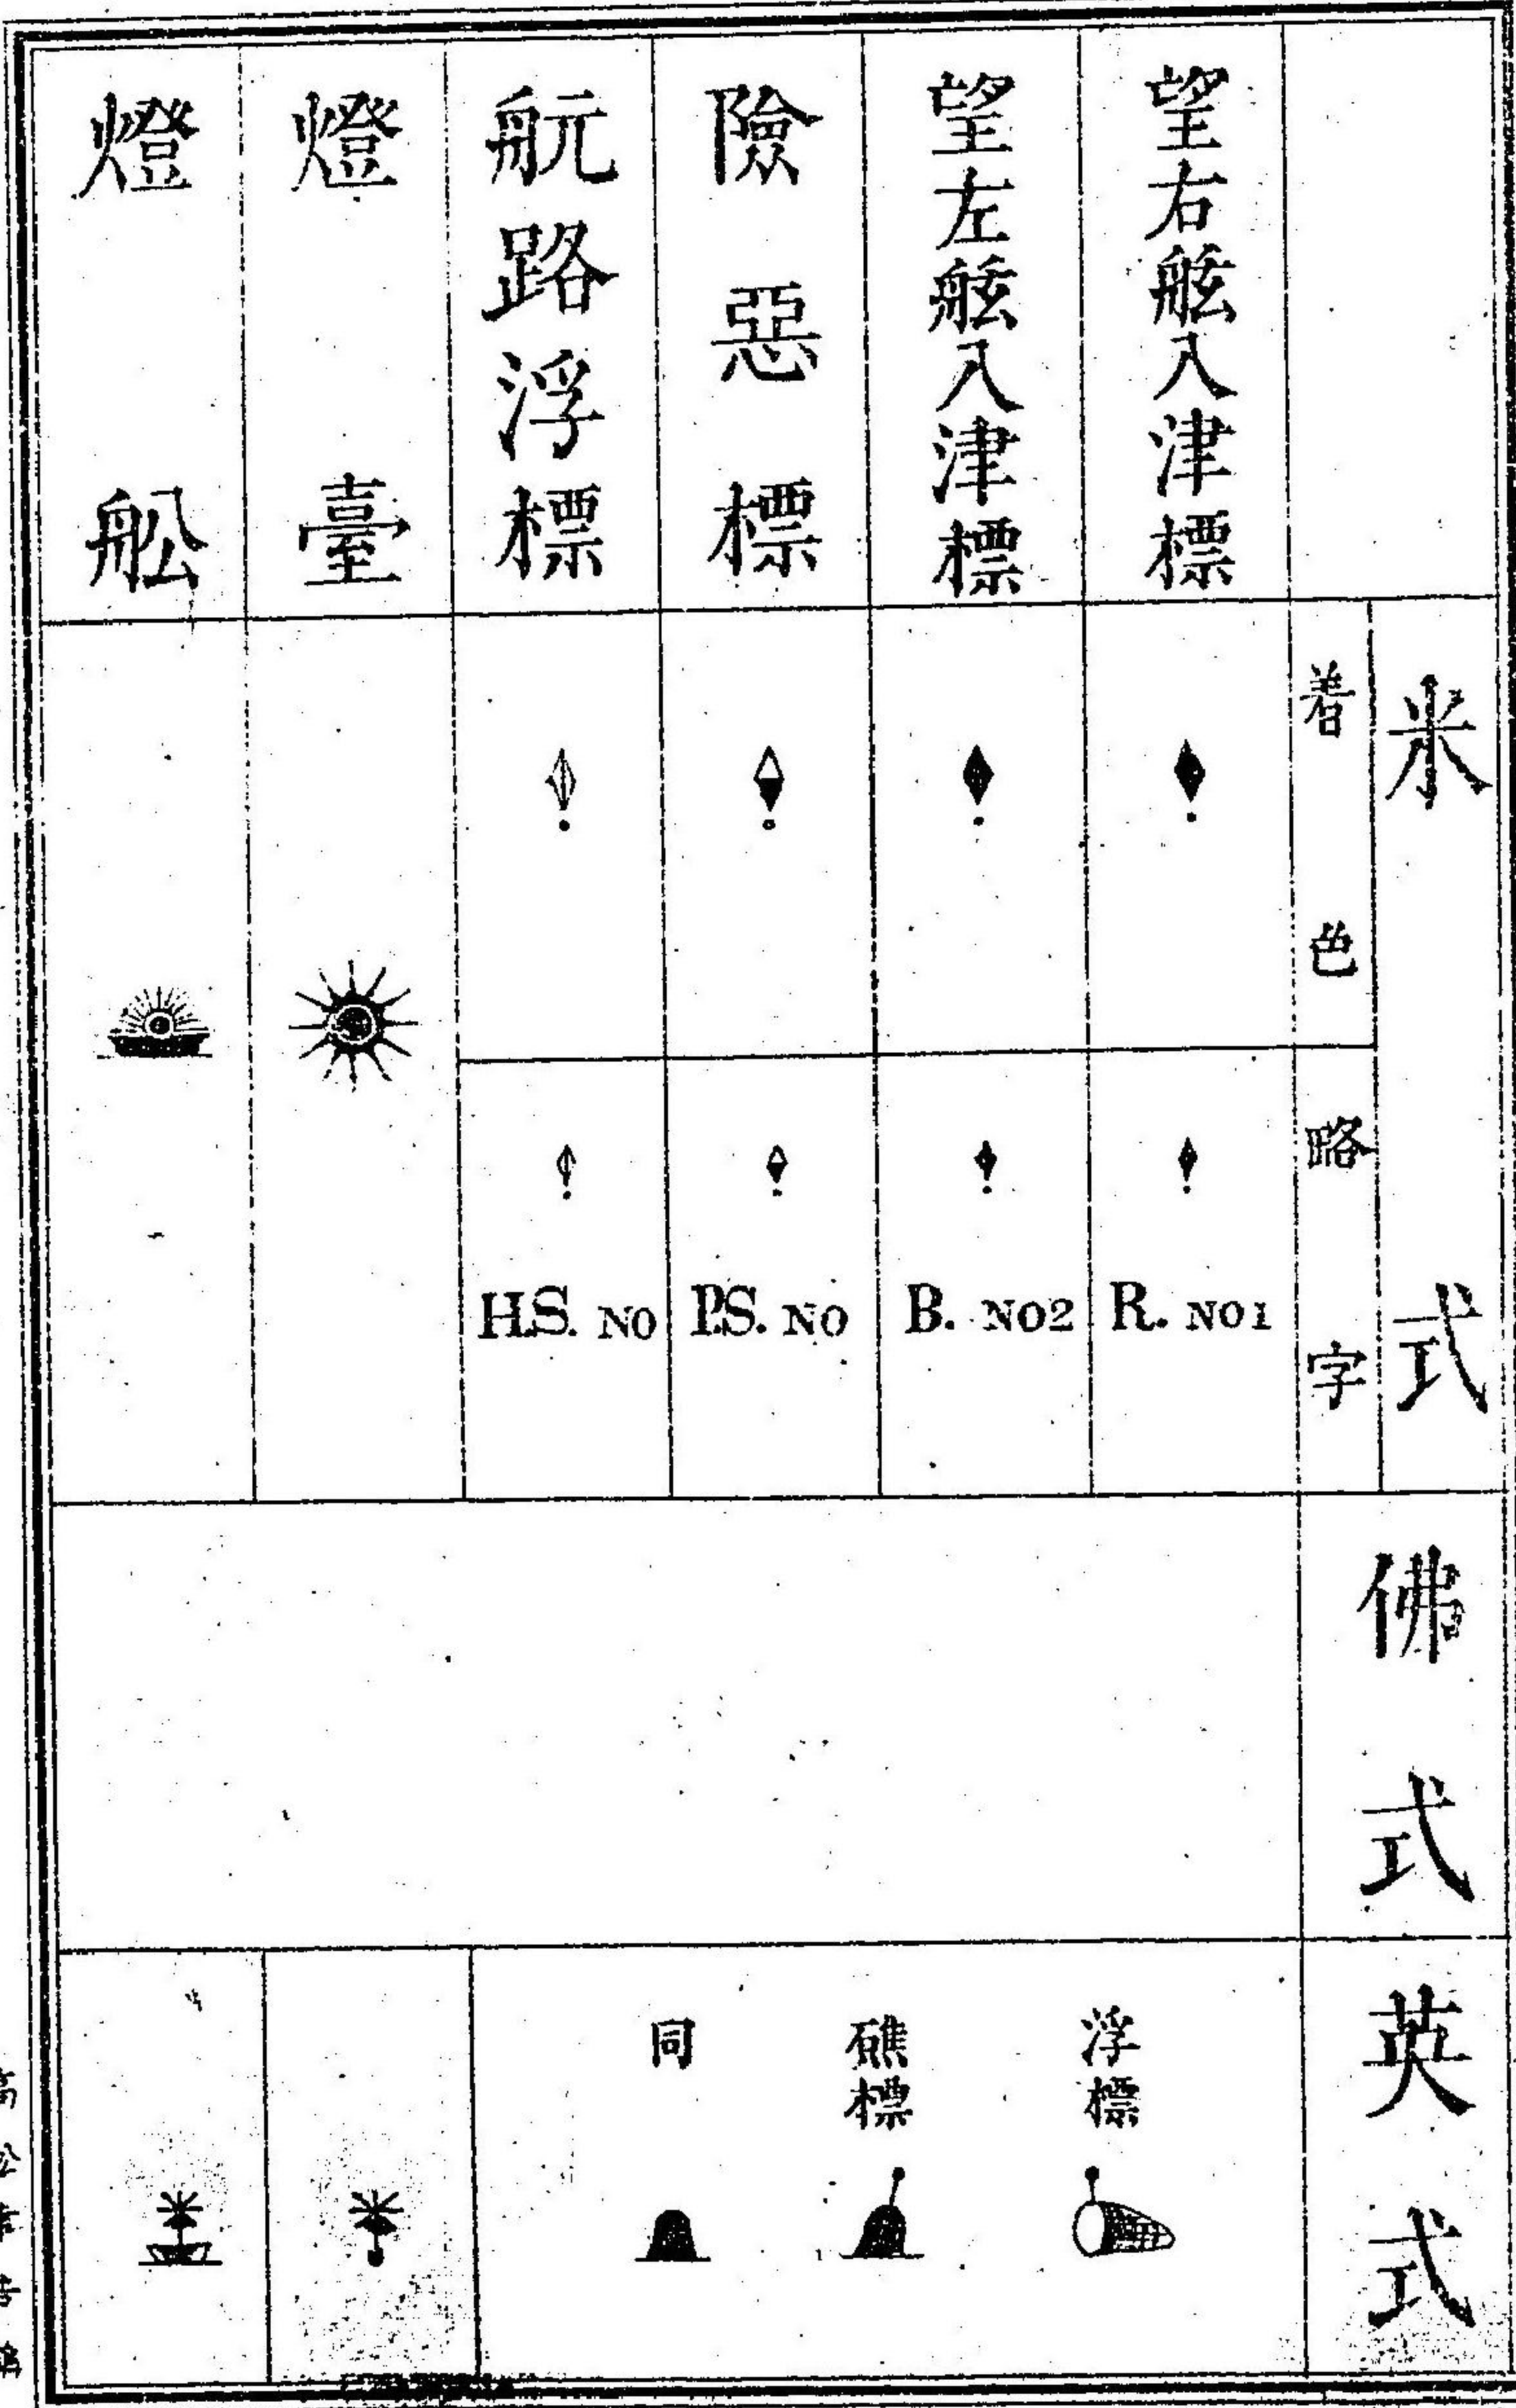 望右舷入津標
望左舷入津標
險惡標
航路浮標
燈臺
燈舩
米式
着色
略字
R. NO1
B. NO2
P.S. NO
H.S. NO
佛式
英式
浮標
礁標
同